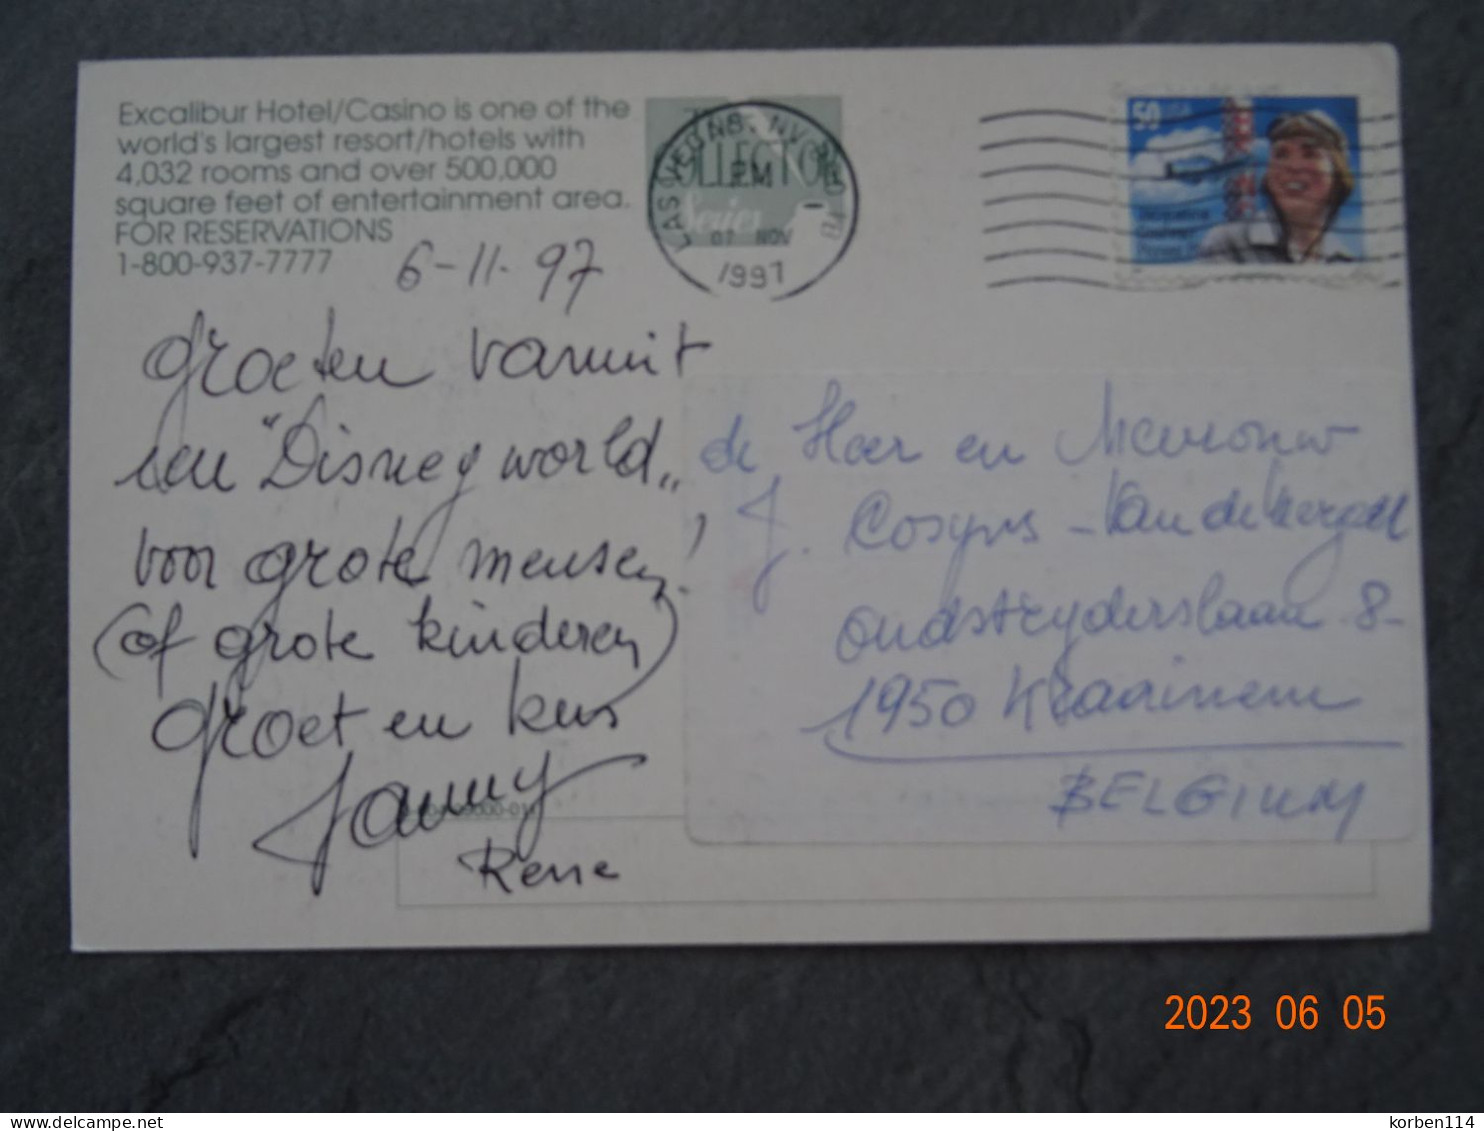 Excalibur Hotel/Casino is one of the
world's largest resort/hotels with
4,032 rooms and over 500,000
square feet of entertainment area.
FOR RESERVATIONS
1-800-937-7777
6-11-97
Groeten vanuit
een "Disney world"
voor grote mensen!
(of grote kinderen)
Groet en kus
Jamy
Rene
COLLECTION
Series
LAS VEGAS, NV
PM
07 NOV
1997
50 USA
de Heer en Mevrouw
J. Cosyns - Van de
Oudstryderslaan 8-
1950 Kraainem
BELGIUM
2023 06 05
delcampe.net
korben114